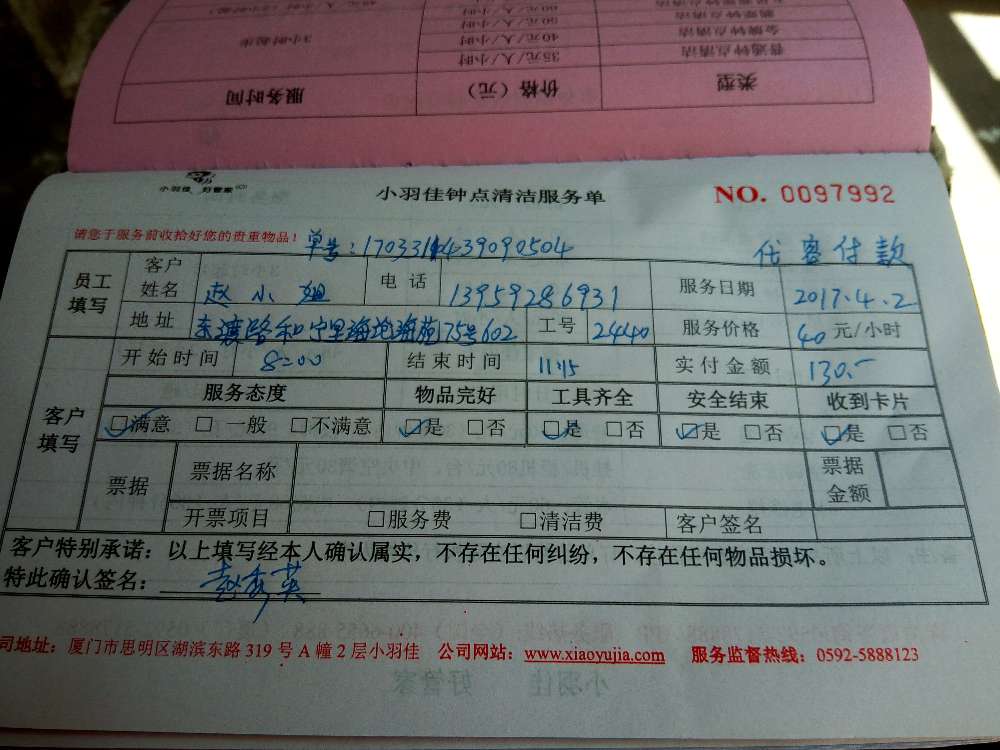 类型 价格（元） 服务时间
普通钟点清洁 35元/人/小时
金牌钟点清洁 40元/人/小时 3小时起步
60元/人/小时
小羽佳 好管家
小羽佳钟点清洁服务单
NO. 0097992
请您于服务前收拾好您的贵重物品！
代客付款
员工填写 客户姓名 赵小姐 电话 13959286931 服务日期 2017.4.2
地址 东渡路和宁里海沧海苑75号602 工号 24440 服务价格 40 元/小时
客户填写 开始时间 8:00 结束时间 11:15 实付金额 130.-
服务态度 物品完好 工具齐全 安全结束 收到卡片
☑满意 □一般 □不满意 ☑是 □否 ☑是 □否 ☑是 □否 ☑是 □否
票据 票据名称 票据金额
开票项目 □服务费 □清洁费 客户签名
客户特别承诺：以上填写经本人确认属实，不存在任何纠纷，不存在任何物品损坏。
特此确认签名：赵秀英
司地址：厦门市思明区湖滨东路 319 号 A 幢 2 层小羽佳 公司网站：www.xiaoyujia.com 服务监督热线：0592-5888123